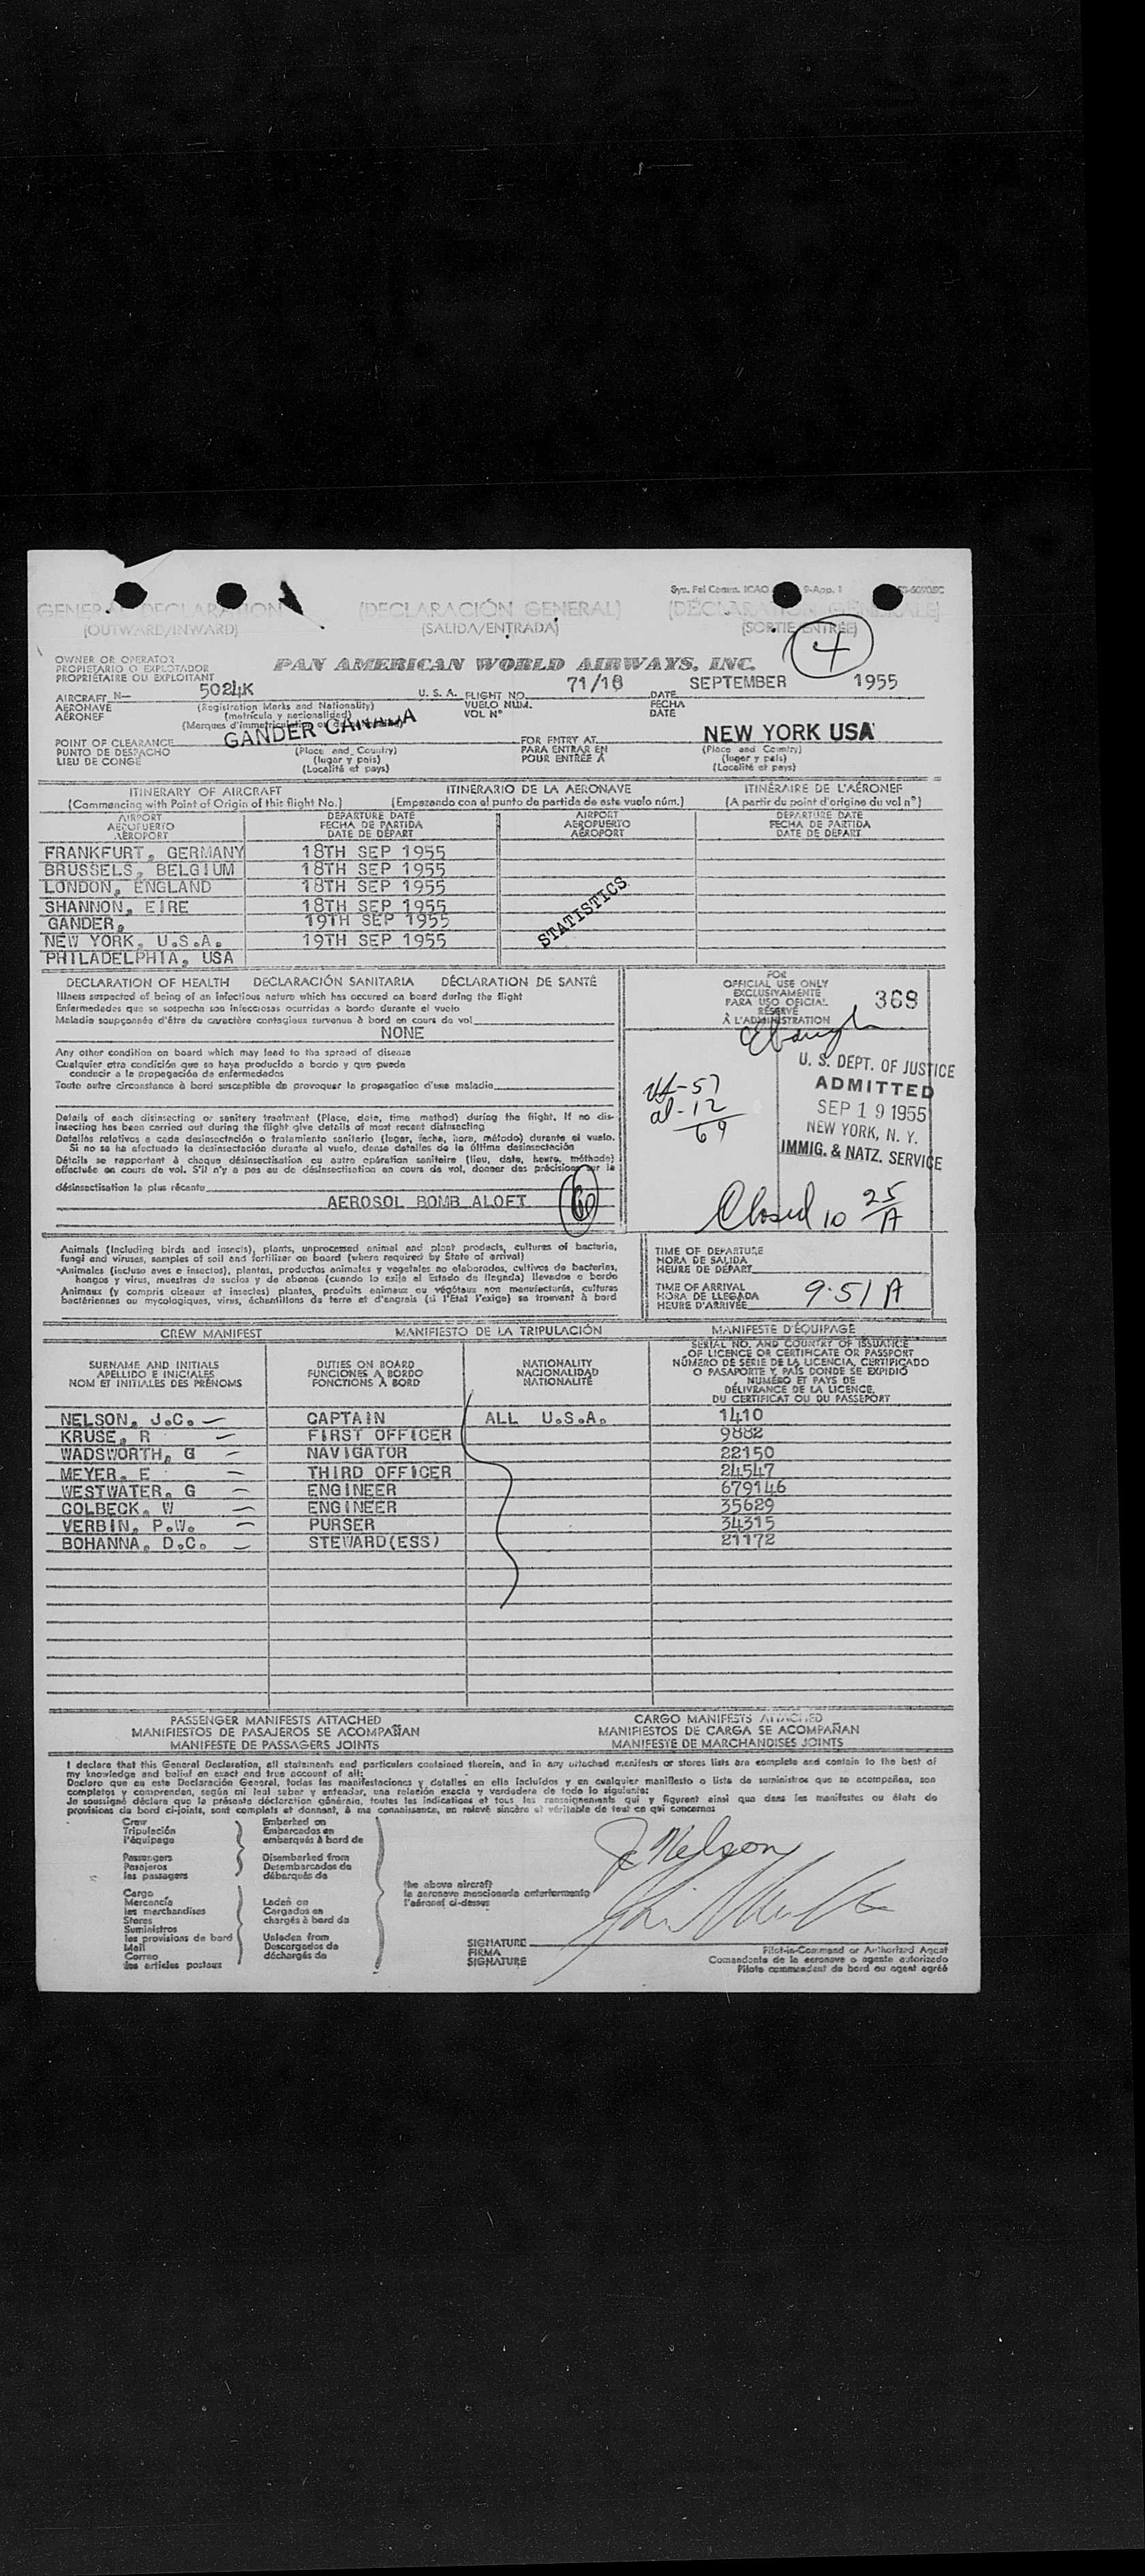 GENERAL DECLARATION (DECLARACIÓN GENERAL) (DÉCLARATION GÉNÉRALE)
(OUTWARD/INWARD) (SALIDA/ENTRADA) (SORTIE ENTRÉE)
Sys. Fal Comm. ICAO 9-App. 1
4
OWNER OR OPERATOR
PROPIETARIO O EXPLOTADOR
PROPRIÉTAIRE OU EXPLOITANT
PAN AMERICAN WORLD AIRWAYS, INC.
AIRCRAFT N— 5024K U. S. A. FLIGHT NO. 71/18 DATE SEPTEMBER 1955
AERONAVE (Registration Marks and Nationality) VUELO NUM. FECHA
AÉRONEF (matrícula y nacionalidad) VOL Nº DATE
(Marques d'immatriculation
GANDER CANADA NEW YORK USA
POINT OF CLEARANCE (Place and Country) FOR ENTRY AT (Place and Country)
PUNTO DE DESPACHO (lugar y país) PARA ENTRAR EN (lugar y país)
LIEU DE CONGÉ (Localité et pays) POUR ENTRÉE À (Localité et pays)
ITINERARY OF AIRCRAFT ITINERARIO DE LA AERONAVE ITINÉRAIRE DE L'AÉRONEF
(Commencing with Point of Origin of this flight No.) (Empezando con el punto de partida de este vuelo núm.) (A partir du point d'origine du vol nº)
AIRPORT DEPARTURE DATE AIRPORT DEPARTURE DATE
AEROPUERTO FECHA DE PARTIDA AEROPUERTO FECHA DE PARTIDA
AÉROPORT DATE DE DÉPART AÉROPORT DATE DE DÉPART
FRANKFURT, GERMANY 18TH SEP 1955
BRUSSELS, BELGIUM 18TH SEP 1955
LONDON, ENGLAND 18TH SEP 1955
SHANNON, EIRE 18TH SEP 1955
GANDER, 19TH SEP 1955
NEW YORK, U.S.A. 19TH SEP 1955
PHILADELPHIA, USA
STATISTICS
DECLARATION OF HEALTH DECLARACIÓN SANITARIA DÉCLARATION DE SANTÉ
Illness suspected of being of an infectious nature which has occured on board during the flight
Enfermedades que se sospecha son infecciosas ocurridas a bordo durante el vuelo
Maladie soupçonnée d'être de caractère contagieux survenue à bord en cours de vol
NONE
Any other condition on board which may lead to the spread of disease
Cualquier otra condición que se haya producido a bordo y que pueda
conducir a la propagación de enfermedades
Toute autre circonstance à bord susceptible de provoquer la propagation d'une maladie
Details of each disinsecting or sanitary treatment (Place, date, time method) during the flight. If no dis-
insecting has been carried out during the flight give details of most recent disinsecting
Detalles relativos a cada desinsectación o tratamiento sanitario (lugar, fecha, hora, método) durante el vuelo.
Si no se ha efectuado la desinsectación durante el vuelo, dense detalles de la última desinsectación
Détails se rapportant à chaque désinsectisation ou autre opération sanitaire (lieu, date, heure, méthode)
effectuée en cours de vol. S'il n'y a pas eu de désinsectisation en cours de vol, donner des précisions sur la
désinsectisation la plus récente
AEROSOL BOMB ALOFT
FOR
OFFICIAL USE ONLY
EXCLUSIVAMENTE
PARA USO OFICIAL
RÉSERVÉ
À L'ADMINISTRATION
368
U. S. DEPT. OF JUSTICE
ADMITTED
SEP 19 1955
NEW YORK, N. Y.
IMMIG. & NATZ. SERVICE
-57
al-12
69
Closed 10 25/A
Animals (including birds and insects), plants, unprocessed animal and plant products, cultures of bacteria,
fungi and viruses, samples of soil and fertilizer on board (where required by State of arrival)
*Animales (incluso aves e insectos), plantas, productos animales y vegetales no elaborados, cultivos de bacterias,
hongos y virus, muestras de suelos y de abonos (cuando lo exija el Estado de llegada) llevados a bordo
Animaux (y compris oiseaux et insectes) plantes, produits animaux ou végétaux non manufacturés, cultures
bactériennes ou mycologiques, virus, échantillons de terre et d'engrais (si l'Etat l'exige) se trouvant à bord
TIME OF DEPARTURE
HORA DE SALIDA
HEURE DE DÉPART
TIME OF ARRIVAL
HORA DE LLEGADA
HEURE D'ARRIVÉE
9.51 A
CREW MANIFEST MANIFIESTO DE LA TRIPULACIÓN MANIFESTE D'ÉQUIPAGE
SURNAME AND INITIALS
APELLIDO E INICIALES
NOM ET INITIALES DES PRÉNOMS
DUTIES ON BOARD
FUNCIONES A BORDO
FONCTIONS À BORD
NATIONALITY
NACIONALIDAD
NATIONALITÉ
SERIAL NO. AND COUNTRY OF ISSUANCE
OF LICENCE OR CERTIFICATE OR PASSPORT
NÚMERO DE SERIE DE LA LICENCIA, CERTIFICADO
O PASAPORTE Y PAÍS DONDE SE EXPIDIÓ
NUMÉRO ET PAYS DE
DÉLIVRANCE DE LA LICENCE,
DU CERTIFICAT OU DU PASSEPORT
NELSON, J.C. CAPTAIN ALL U.S.A. 1410
KRUSE, R FIRST OFFICER 9882
WADSWORTH, G NAVIGATOR 22150
MEYER, E THIRD OFFICER 24547
WESTWATER, G ENGINEER 679146
COLBECK, W ENGINEER 35629
VERBIN, P.W. PURSER 34315
BOHANNA, D.C. STEWARD(ESS) 21172
PASSENGER MANIFESTS ATTACHED CARGO MANIFESTS ATTACHED
MANIFIESTOS DE PASAJEROS SE ACOMPAÑAN MANIFIESTOS DE CARGA SE ACOMPAÑAN
MANIFESTE DE PASSAGERS JOINTS MANIFESTE DE MARCHANDISES JOINTS
I declare that this General Declaration, all statements and particulars contained therein, and in any attached manifests or stores lists are complete and contain to the best of
my knowledge and belief an exact and true account of all:
Declaro que en este Declaración General, todas las manifestaciones y detalles en ella incluídos y en cualquier manifiesto o lista de suministros que se acompañan, son
completos y comprenden, según mi leal saber y entender, una relación exacta y verdadera de todo lo siguiente:
Je soussigné déclare que la présente déclaration générale, toutes les indications et tous les renseignements qui y figurent ainsi que dans les manifestes ou états de
provisions de bord ci-joints, sont complets et donnent, à ma connaissance, un relevé sincère et véritable de tout ce qui concerne:
Crew
Tripulación
l'équipage
Passengers
Pasajeros
les passagers
Cargo
Mercancía
les merchandises
Stores
Suministros
les provisions de bord
Mail
Correo
des articles postaux
Embarked on
Embarcados en
embarqués à bord de
Disembarked from
Desembarcados de
débarqués de
Laden on
Cargados en
chargés à bord da
Unladen from
Descargados de
déchargés de
the above aircraft
la aeronave mencionada anteriormente
l'aéronef ci-dessus
J Nelson
SIGNATURE
FIRMA
SIGNATURE
Pilot-in-Command or Authorized Agent
Comandante de la aeronave o agente autorizado
Pilote commandant de bord ou agent agréé